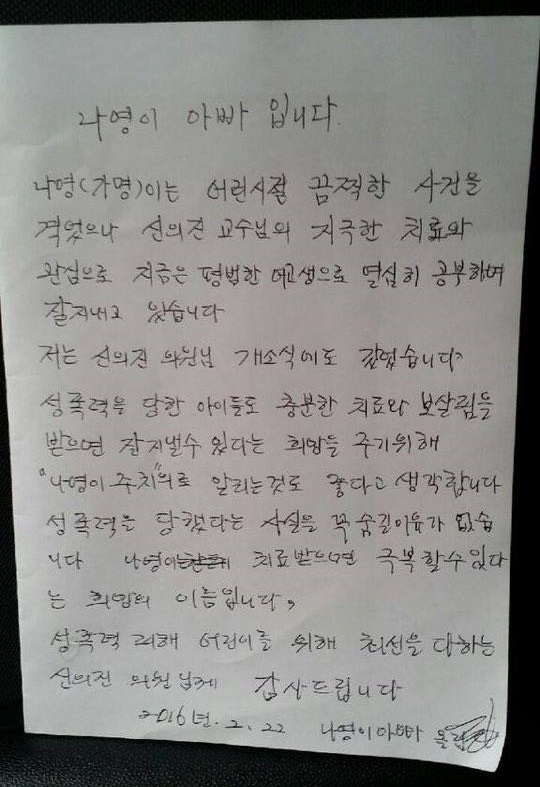 나영이 아빠 입니다.
나영(가명)이는 어린시절 끔찍한 사건을
격었으나 신의진 교수님의 지극한 치료와
관심으로 지금은 평범한 여고생으로 열심히 공부하며
잘지내고 있습니다
저는 신의진 의원님 개소식에도 갔었습니다
성폭력을 당한 아이들도 충분한 치료와 보살핌을
받으면 잘지낼수 있다는 희망을 주기위해
"나영이 주치"의로 알리는것도 좋다고 생각합니다
성폭력을 당했다는 사실을 꼭 숨길이유가 없습
니다 나영이는 치료받으면 극복할수있다
는 희망의 이름입니다.
성폭력 피해 어린이를 위해 최선을 다하는
신의진 의원님께 감사드립니다
2016년. 2. 22 나영이아빠 올림